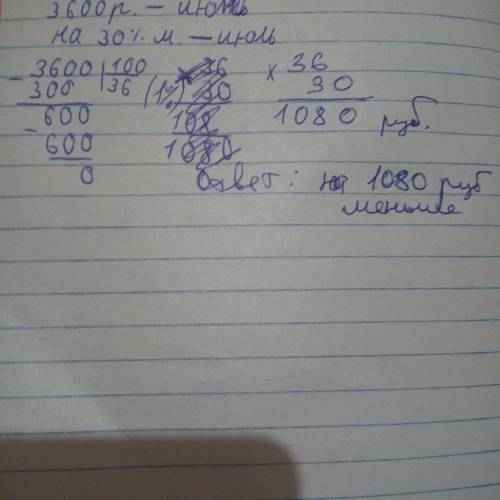 3600р. — июнь
на 30% м. — июль
- 3600 | 100
300 | 36 (1%)
600
- 600
0
x 36
30
1080 руб.
Ответ: на 1080 руб
меньше